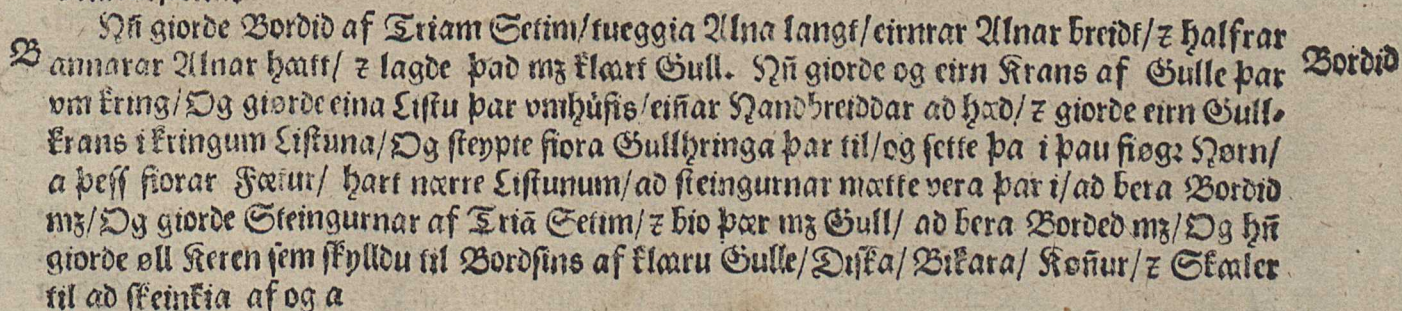 Hn̄ giorde Bordid af Triam Setim/tueggia Alna langt/eirnrar Alnar breidt/ ⁊ halfrar
B annarar Alnar hætt/ ⁊ lagde þad mꝫ klært Gull. Hn̄ giorde og eirn Krans af Gulle þar Bordid
vm kring/Og giørde eina Listu þar vmhůfis/ein̄ar Handbreiddar ad hæd/ ⁊ giorde eirn Gull⸗
krans i kringum Listuna/Og steypte fiora Gullhringa þar til/og sette þa i þau fiøgꝛ Hørn/
a þess fiorar Fætur/ hart nærre Listunum/ad steingurnar mætte vera þar i/ad bera Bordid
mꝫ/Og giorde Steingurnar af Triā Setim/ ⁊ bio þær mꝫ Gull/ ad bera Borded mꝫ/Og hn̄
giorde øll Keren sem skylldu til Bordsins af klæru Gulle/Diska/ Bikara/ Køn̄ur/ ⁊ Skæler
til ad skeinkia af og a